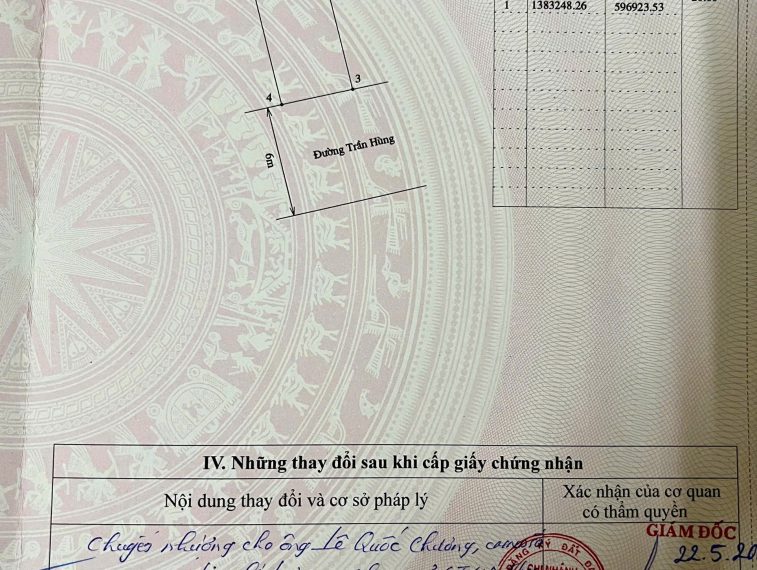 1 1383248.26 596923.53
3
4
6m
Đường Trần Hùng
IV. Những thay đổi sau khi cấp giấy chứng nhận
Nội dung thay đổi và cơ sở pháp lý
Xác nhận của cơ quan
có thẩm quyền
GIÁM ĐỐC
Chuyển nhượng cho ông Lê Quốc Chương,
22.5.20
ĐĂNG KÝ ĐẤT Đ
CHI NHÁNH